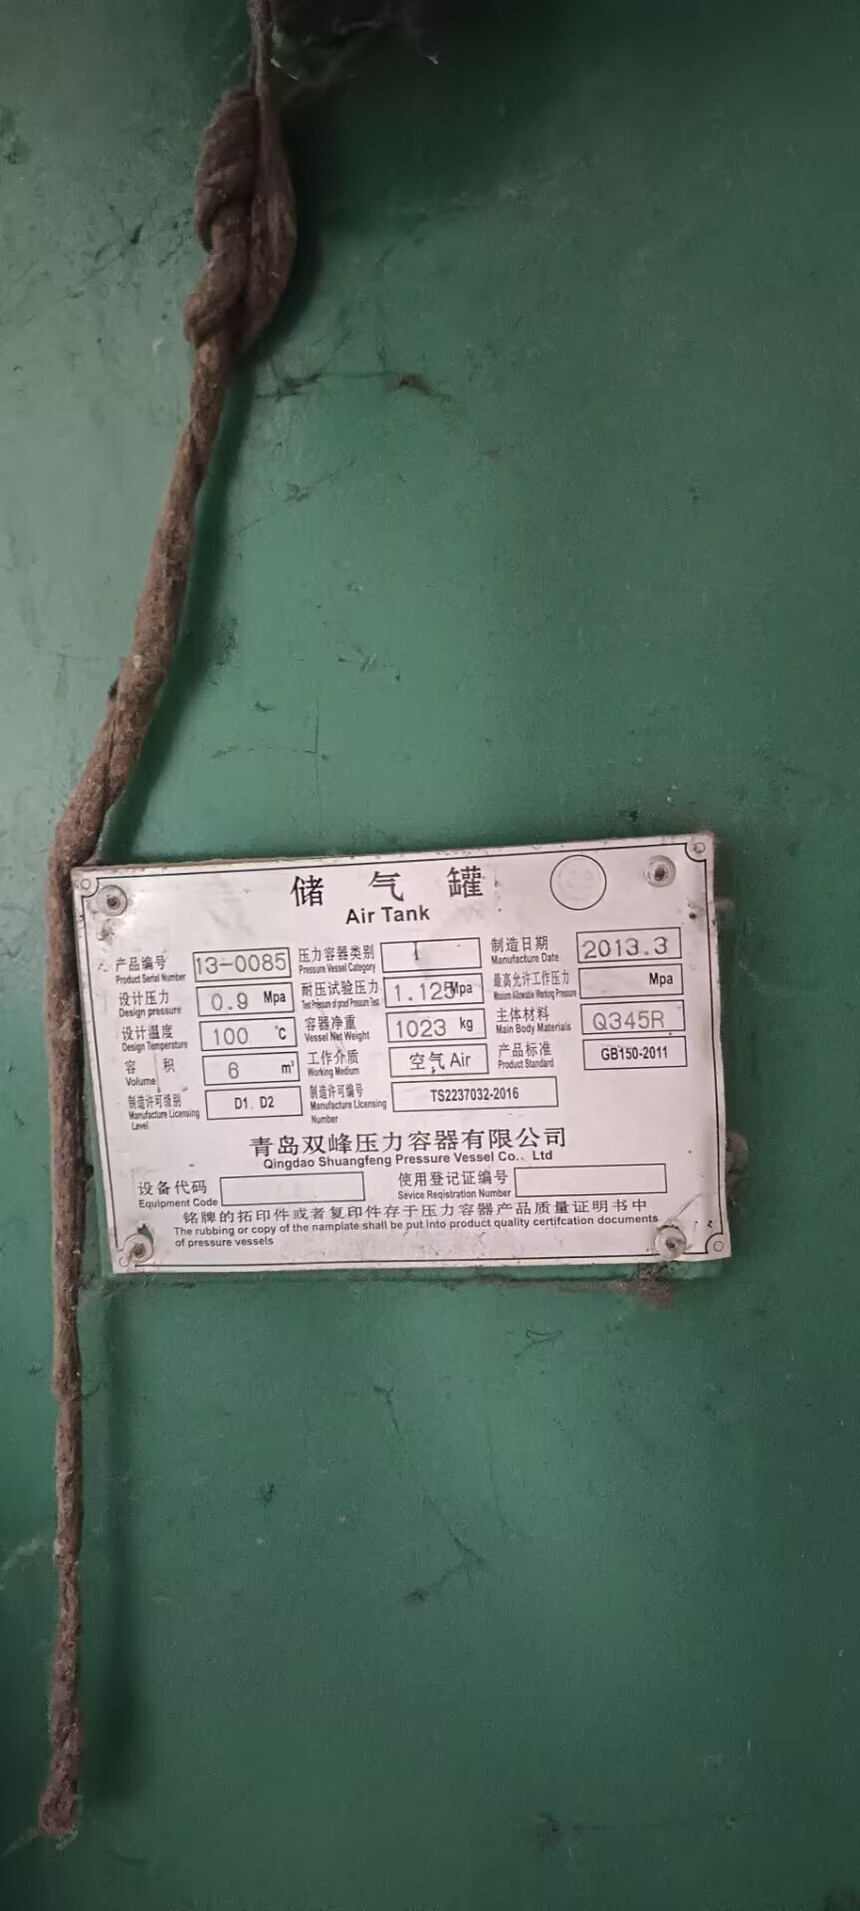 储气罐
Air Tank
产品编号 13-0085 压力容器类别 I 制造日期 2013.3
Product Serial Number Pressure Vessel Category Manufacture Date
设计压力 0.9 Mpa 耐压试验压力 1.125Mpa 最高允许工作压力 Mpa
Design pressure
设计温度 100 ℃ 容器净重 1023 kg 主体材料 Q345R
Design Temperature Vessel Net Weight Main Body Materials
容积 6 m³ 工作介质 空气 Air 产品标准 GB150-2011
Volume Working Medium Product Standard
制造许可级别 D1. D2 制造许可编号 TS2237032-2016
Manufacture Licensing Level Manufacture Licensing Number
青岛双峰压力容器有限公司
Qingdao Shuangfeng Pressure Vessel Co.. Ltd
设备代码 使用登记证编号
Equipment Code Sevice Registration Number
铭牌的拓印件或者复印件存于压力容器产品质量证明书中
The rubbing or copy of the namplate shall be put into product quality certifcation documents
of pressure vessels